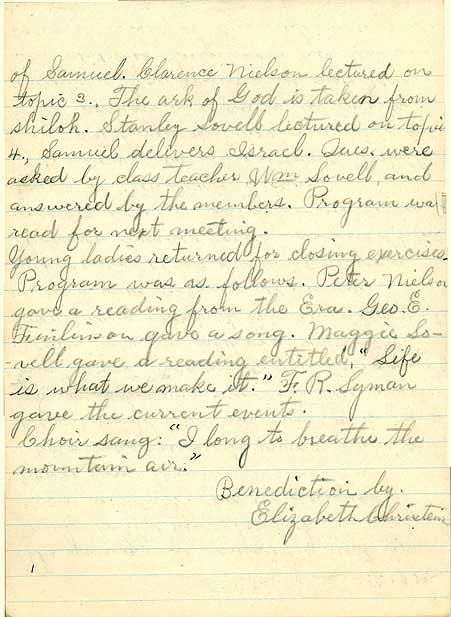 of Samuel. Clarence Nielson lectured on
topic 3., The ark of God is taken from
shiloh. Stanley Lovell lectured on topic
4., Samuel delivers Israel. Ques. were
asked by class teacher Wm Lovell, and
answered by the members. Program was
read for next meeting.
Young ladies returned for closing exercises.
Program was as follows. Peter Nielson
gave a reading from the Era. Geo. E.
Finlinson gave a song. Maggie Lo-
-vell gave a reading entitled, "Life
is what we make it." F. R. Lyman
gave the current events.
Choir sang: "I long to breathe the
mountain air."
Benediction by.
Elizabeth